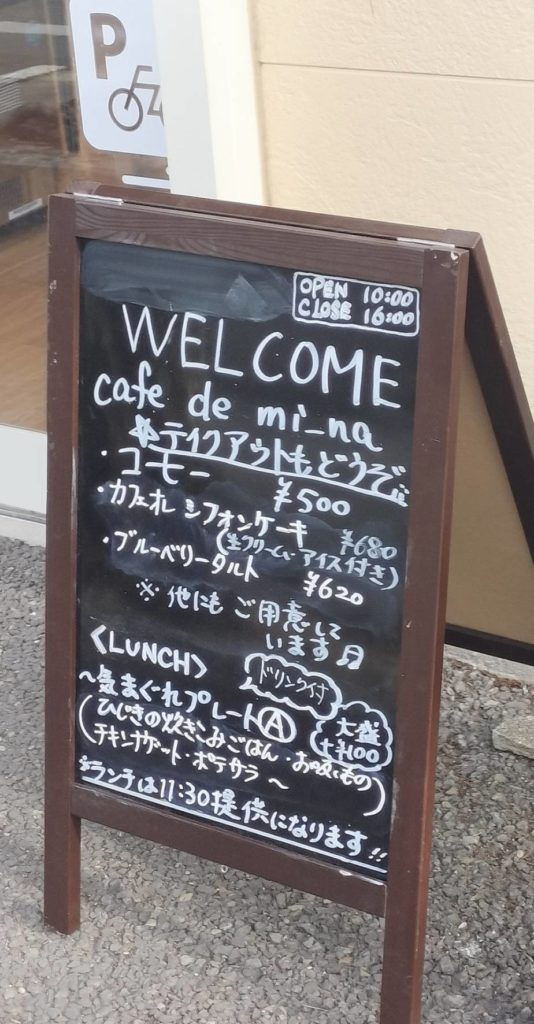 P
OPEN 10:00
CLOSE 16:00
WELCOME
cafe de mi_na
☆テイクアウトもどうぞ
・コーヒー ¥500
・カフェオレ シフォンケーキ ¥680
(生クリーム・アイス付き)
・ブルーベリータルト ¥620
※他にもご用意して
います♬
〈LUNCH〉
ドリンク付
～気まぐれプレートⒶ
大盛
+¥100
(ひじきの炊きこみごはん・お吸いもの
チキンナゲット・ポテサラ～)
※ランチは11:30提供になります!!